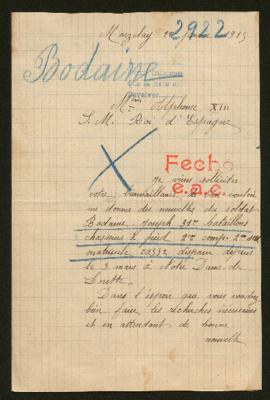 2922
Marzelay 1915
Bodaine
Mr Alphonse XIII
S. M. Roi d'Espagne
Fecho
e.a.c.
Je viens sollicite
votre bienveillance
me donner des nouvelles du soldat
Bodaine Joseph 31me bataillons
chasseurs à pied 2me comp.
matricule disparu depuis
le 3 mars à Notre Dame de
Lorette.
Dans l'espoir que vous voudrez
bien faire les recherches nécessaires
et en attendant de bonne
nouvelle